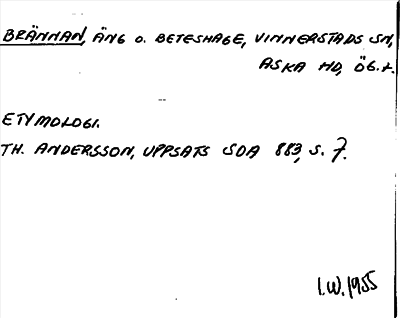 BRÄNNAN, ÄNG O. BETESHAGE, VINNERSTADS SN,
ASKA HD, ÖG.L.
ETYMOLOGI.
TH. ANDERSSON, UPPSATS SOA 883, S. 7.
I.W. 1955